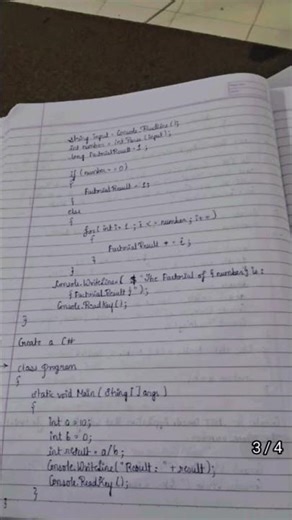 String input = Console.ReadLine();
int number = int.Parse(input);
long factorialResult = 1;
if (number == 0)
{
factorialResult = 1;
}
else
{
for (int i = 1; i <= number; i++)
{
factorialResult * = i;
}
}
Console.WriteLine( $ "The Factorial of {number} is :
{factorialResult}");
Console.ReadKey();
}
Create a C#
→ class program
{
static void Main (String [] args)
{
int a = 10;
int b = 0;
int result = a/b;
Console.WriteLine("Result : " + result);
Console.ReadKey();
}
}
3/4